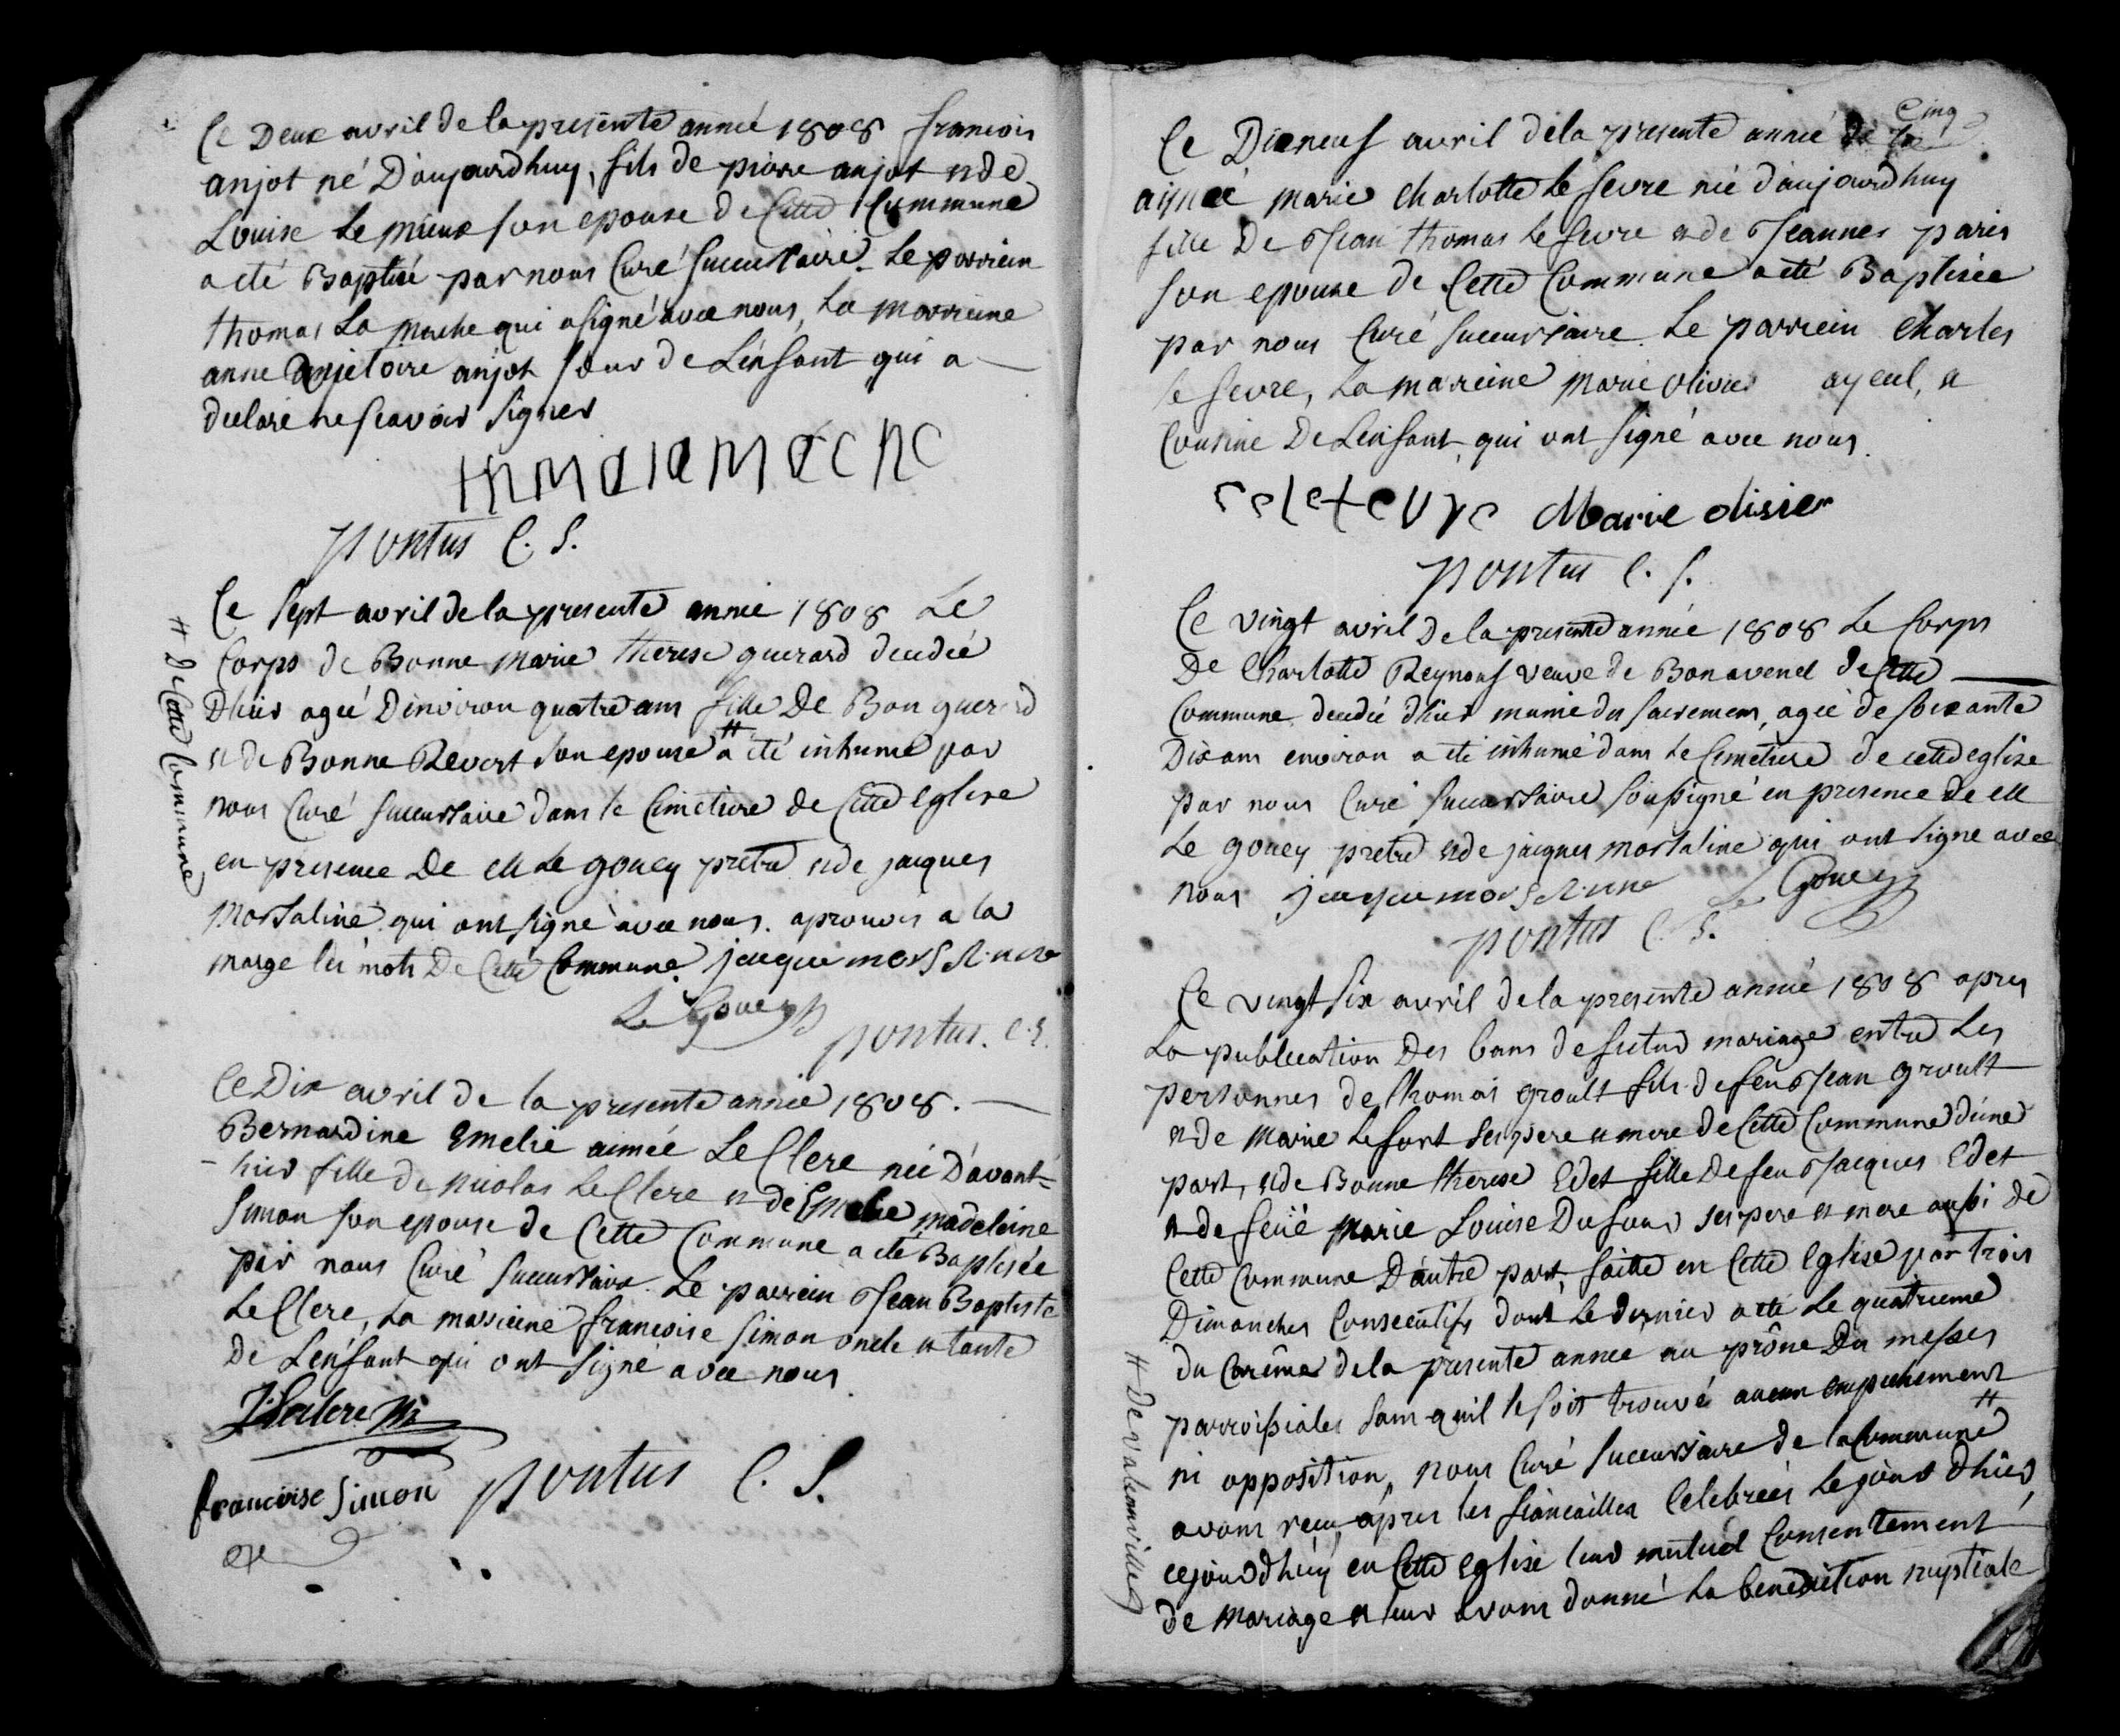 Ce Deux avril de la presente anneé 1808 francois
anjot né D'aujourdhuy, fils de pierre anjot et de
Louise Le mieux son epouse de Cette Commune
a eté Baptisé par nous Curé succursaire. Le parrein
thomas La mache qui a signé avec nous, La marreine
anne anjot soeur de L'enfant qui a
declaré ne scavoir signer
pontus C. S.
Ce sept avril de la presente anneé 1808 Le
Corps de Bonne Marie therese guerard decedeé
D'hier ageé D'environ quatre ans fille De Bon guerard
et de Bonne Revert son epouse # a été inhumé par
nous Curé succursaire dans le Cimetiere de Cette eglise
en presence De M Le gouey pretre et de jacques
Morsaline qui ont signé avec nous. aprouvés a la
marge les mots De Cette Commune. jacque morsaline
Le Gouey
pontus. C. S.
# De Cette Commune
Ce Dix avril de la presente anneé 1808.
Bernardine Emelie aimée Le Clerc neé D'avant-
-hier fille de Nicolas Le Clerc et de Emelie madeleine
Simon son epouse de Cette Commune a eté Baptisée
par nous Curé succursaire. Le parrein Jean Baptiste
Le Clerc, La marreine francoise Simon oncle et tante
De L'enfant qui ont signé avec nous
francoise Simon
pontus C. S.
Ce Dixneuf avril de la presente anneé
Cinq
aimeé marie Charlotte Le fevre neé d'aujourdhuy
fille De Jean thomas Le fevre et de Jeannes paris
son epouse de Cette Commune a eté Baptiseé
par nous Curé succursaire. Le parrein Charles
le fevre, La marreine Marie Olivier ayeul, et
Cousine De L'enfant, qui ont signé avec nous.
Marie olivier
pontus C. S.
Ce vingt avril De la presente année 1808 Le Corps
De Charlotte Reynouf veuve de Bon avenel de Cette
Commune decedeé d'hier munie des sacremens, ageé de soixante
Dix ans environ a eté inhumé dans Le Cimetiere de cette eglise
par nous Curé succursaire soussigné en presence De M
Le gouey pretre et de jacques morsaline qui ont signé avec
nous jacque morsaline Le Gouey
pontus C. S.
Ce vingt six avril de la presente anneé 1808 apres
La publication Des bans de futur mariage entre Les
personnes de thomas groult fils de feu Jean groult
et de Marie Le fort ses pere et mere de Cette Commune d'une
part, et de Bonne therese Edet fille De feu Jacques Edet
et de feüe Marie Louise Dufour ses pere et mere aussi de
Cette Commune D'autre part, faitte en Cette Eglise par trois
Dimanches Consecutifs dont Le dernier a eté Le quatrieme
du Carême de la presente anneé au prône Des messes
parroissiales sans qu'il se soit trouvé aucun empechement
ni opposition, nous Curé succursaire de la Commune #
avons recu, apres les fiancailles Celebreés Le jour d'hier,
cejourdhuy en Cette Eglise leur mutuel Consentement
de Mariage et leur avons donné La benediction nuptiale
# De valcanville